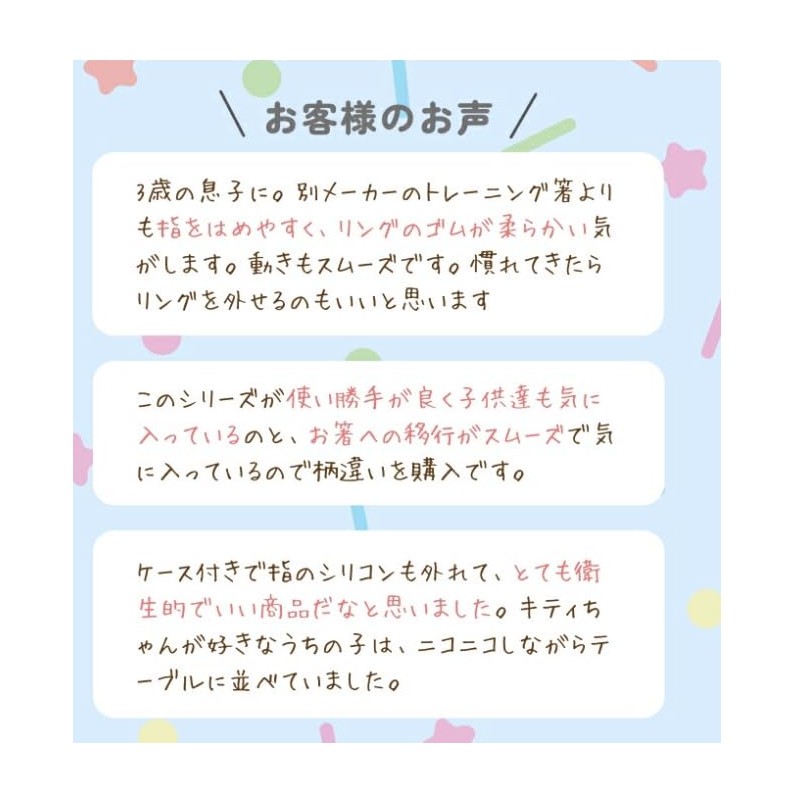 お客様のお声
3歳の息子に。別メーカーのトレーニング箸より
も指をはめやすく、リングのゴムが柔らかい気
がします。動きもスムーズです。慣れてきたら
リングを外せるのもいいと思います
このシリーズが使い勝手が良く子供達も気に
入っているのと、お箸への移行がスムーズで気
に入っているので柄違いを購入です。
ケース付きで指のシリコンも外れて、とても衛
生的でいい商品だなと思いました。キティち
ゃんが好きなうちの子は、ニコニコしながらテ
ーブルに並べていました。